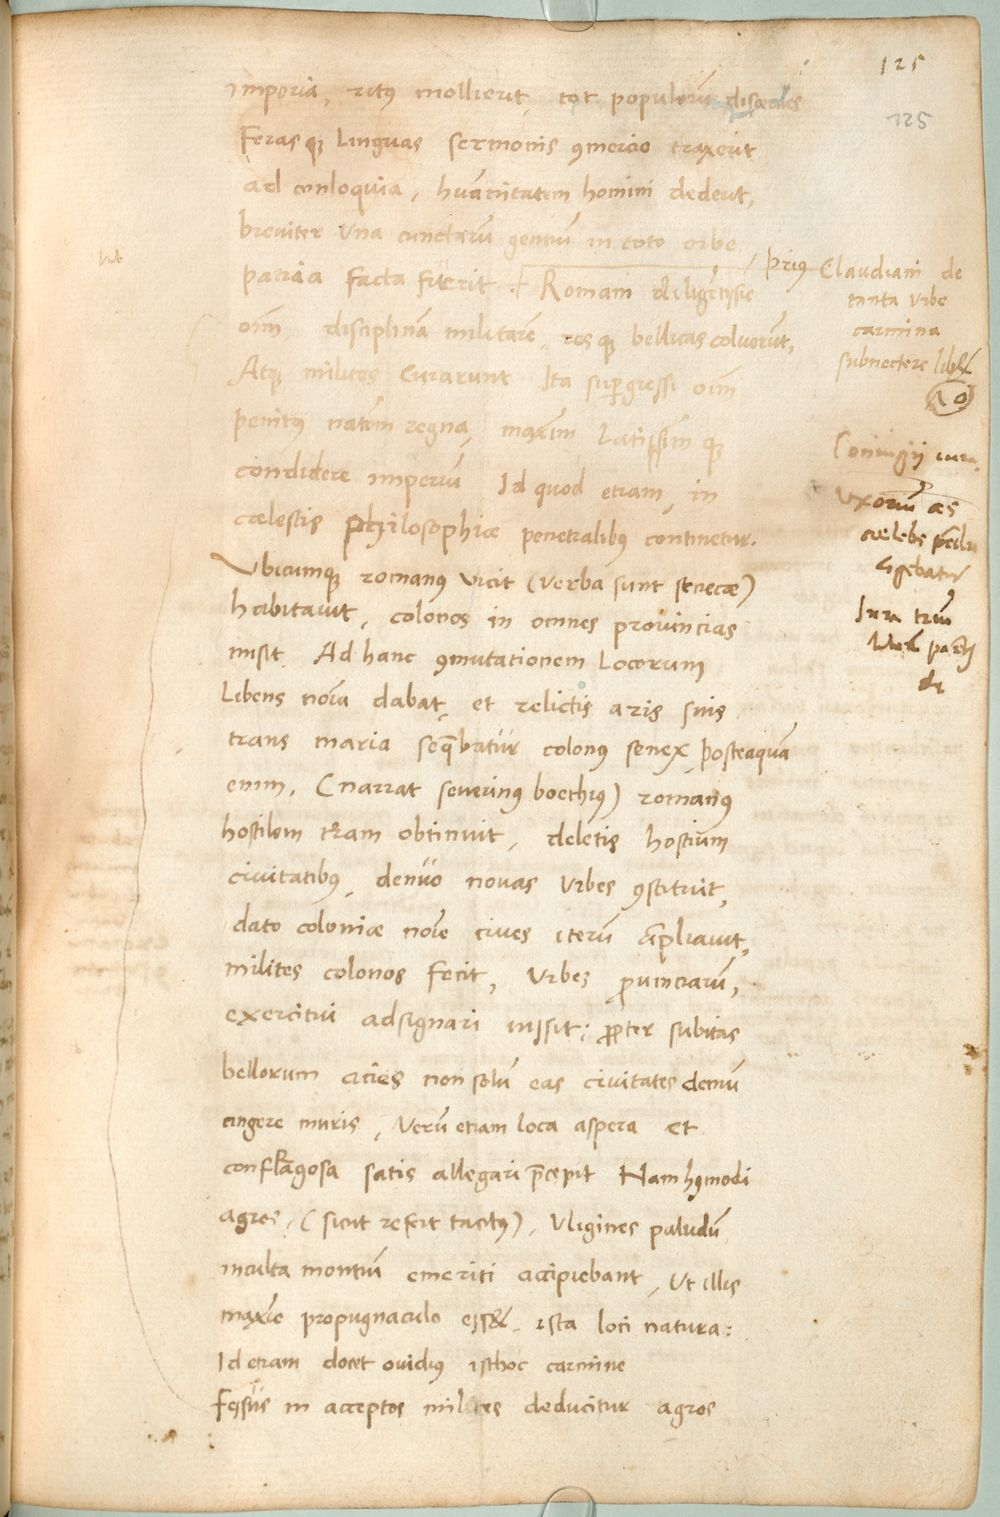 125
125
imperia, ritus mollierit, tot populorū discordes
Feras qꝫ Linguas sermonis ꝯmercio traxerit
ad conloquia, huānitatem homini dederit,
breviter Una cunctarū gentiū in toto orbe
patria facta fuerit. Romani diligētissie
oīm, disciplinā militarē, res qꝫ bellicas coluerūt,
Atqꝫ milites Curarunt Ita supergressi oīm
penitꝰ natōm regna, maxim Latissim qꝫ
condidere imperiū Id quod etiam, in
cælestis philosophiæ penetralibꝰ continetur.
Vbicumqꝫ romanꝰ vicit (verba sunt senecæ)
habitavit, colonos in omnes provincias
misit. Ad hanc ꝯmutationem Locorum
Libens noīa dabat, et relictis aris suis
trans maria seq̄batur colonꝰ senex, posteaquā
enim, (narrat severinꝰ boethiꝰ) romanꝰ
hostilem tr̄am obtinuit, deletis hostium
civitatibꝰ, denuo novas Urbes ꝯstituit,
dato coloniæ noīe cives iterū āpliavit,
milites colonos fecit, Urbes ꝓvinciarū,
exercitui adsignari iussit: ꝓpter subitas
bellorum acies non solū eas civitates demū
cingere muris, Verū etiam loca aspera et
confragosa satis allegari p̄cepit Nam hꝰmodi
agros, (sicut refert tacitꝰ), Uligines paludū
inculta montiū emeriti accipiebant, Ut illis
maxīe propugnaculo esset ista loci natura:
Id etiam docet ovidius isthoc carmine
Fessus in acceptos miles deducitur agros
prius Claudiani de
tanta Urbe
carmina
subnectere lib&
10
Coniugij iura
Uxoriū æs
cælebs
Iura triū